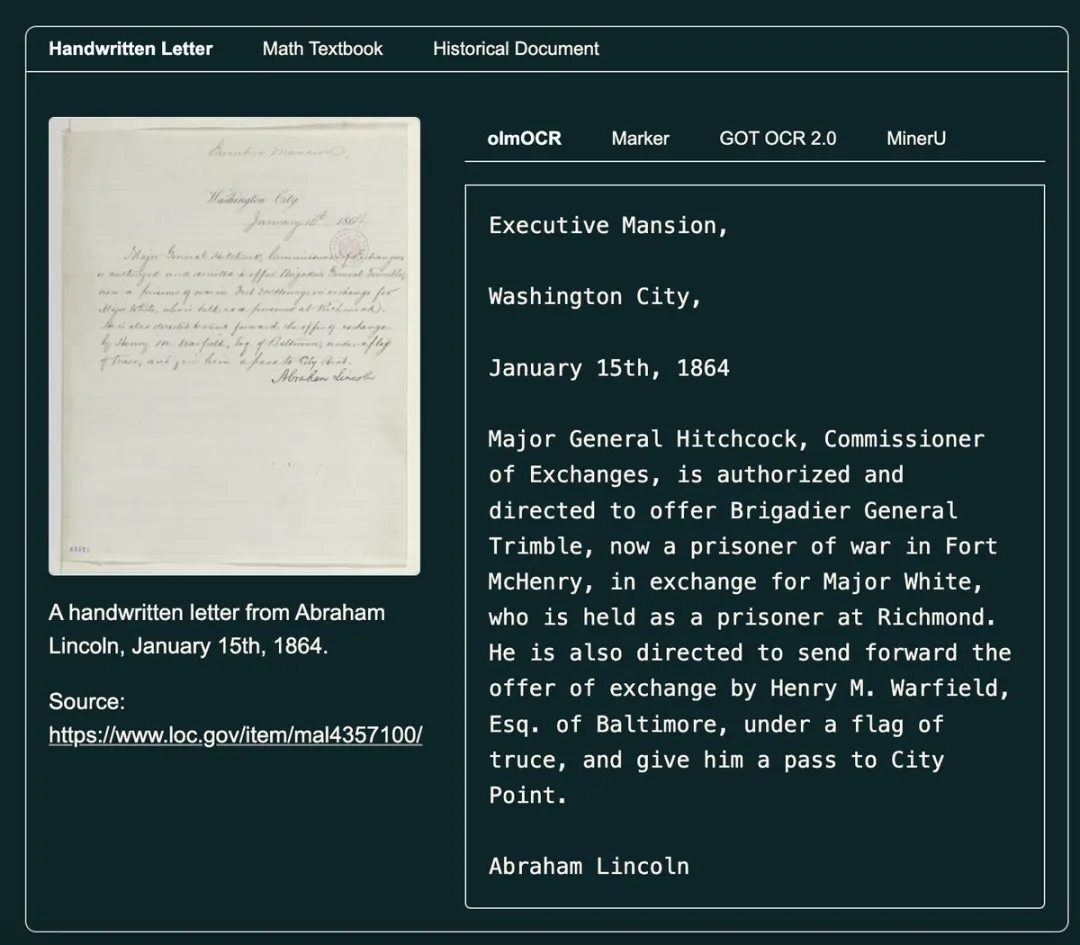 Handwritten Letter
Math Textbook
Historical Document
Executive Mansion,
Washington City
January 15th 1864
Major General Hitchcock, Commissioner of Exchanges
is authorized and directed to offer Brigadier General Trimble,
now a prisoner of war in Fort McHenry, in exchange for
Major White, who is held as a prisoner at Richmond.
He is also directed to send forward the offer of exchange
by Henry M. Warfield, Esq. of Baltimore, under a flag
of truce, and give him a pass to City Point.
Abraham Lincoln
A handwritten letter from Abraham
Lincoln, January 15th, 1864.
Source:
https://www.loc.gov/item/mal4357100/
olmOCR
Marker
GOT OCR 2.0
MinerU
Executive Mansion,
Washington City,
January 15th, 1864
Major General Hitchcock, Commissioner
of Exchanges, is authorized and
directed to offer Brigadier General
Trimble, now a prisoner of war in Fort
McHenry, in exchange for Major White,
who is held as a prisoner at Richmond.
He is also directed to send forward the
offer of exchange by Henry M. Warfield,
Esq. of Baltimore, under a flag of
truce, and give him a pass to City
Point.
Abraham Lincoln